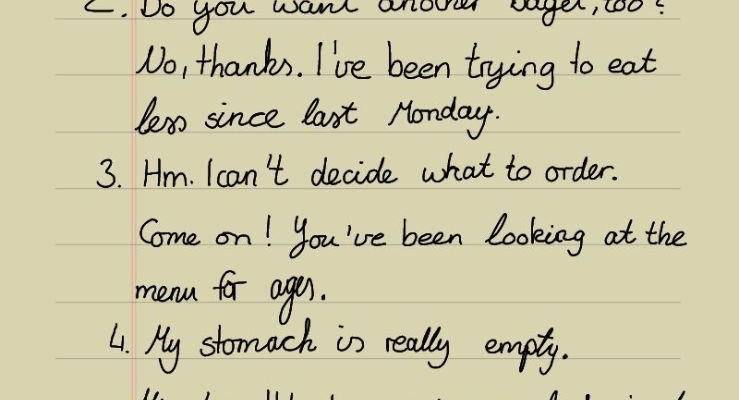 2. Do you want another bagel, too?
No, thanks. I've been trying to eat
less since last Monday.
3. Hm. I can't decide what to order.
Come on! You've been looking at the
menu for ages.
4. My stomach is really empty.